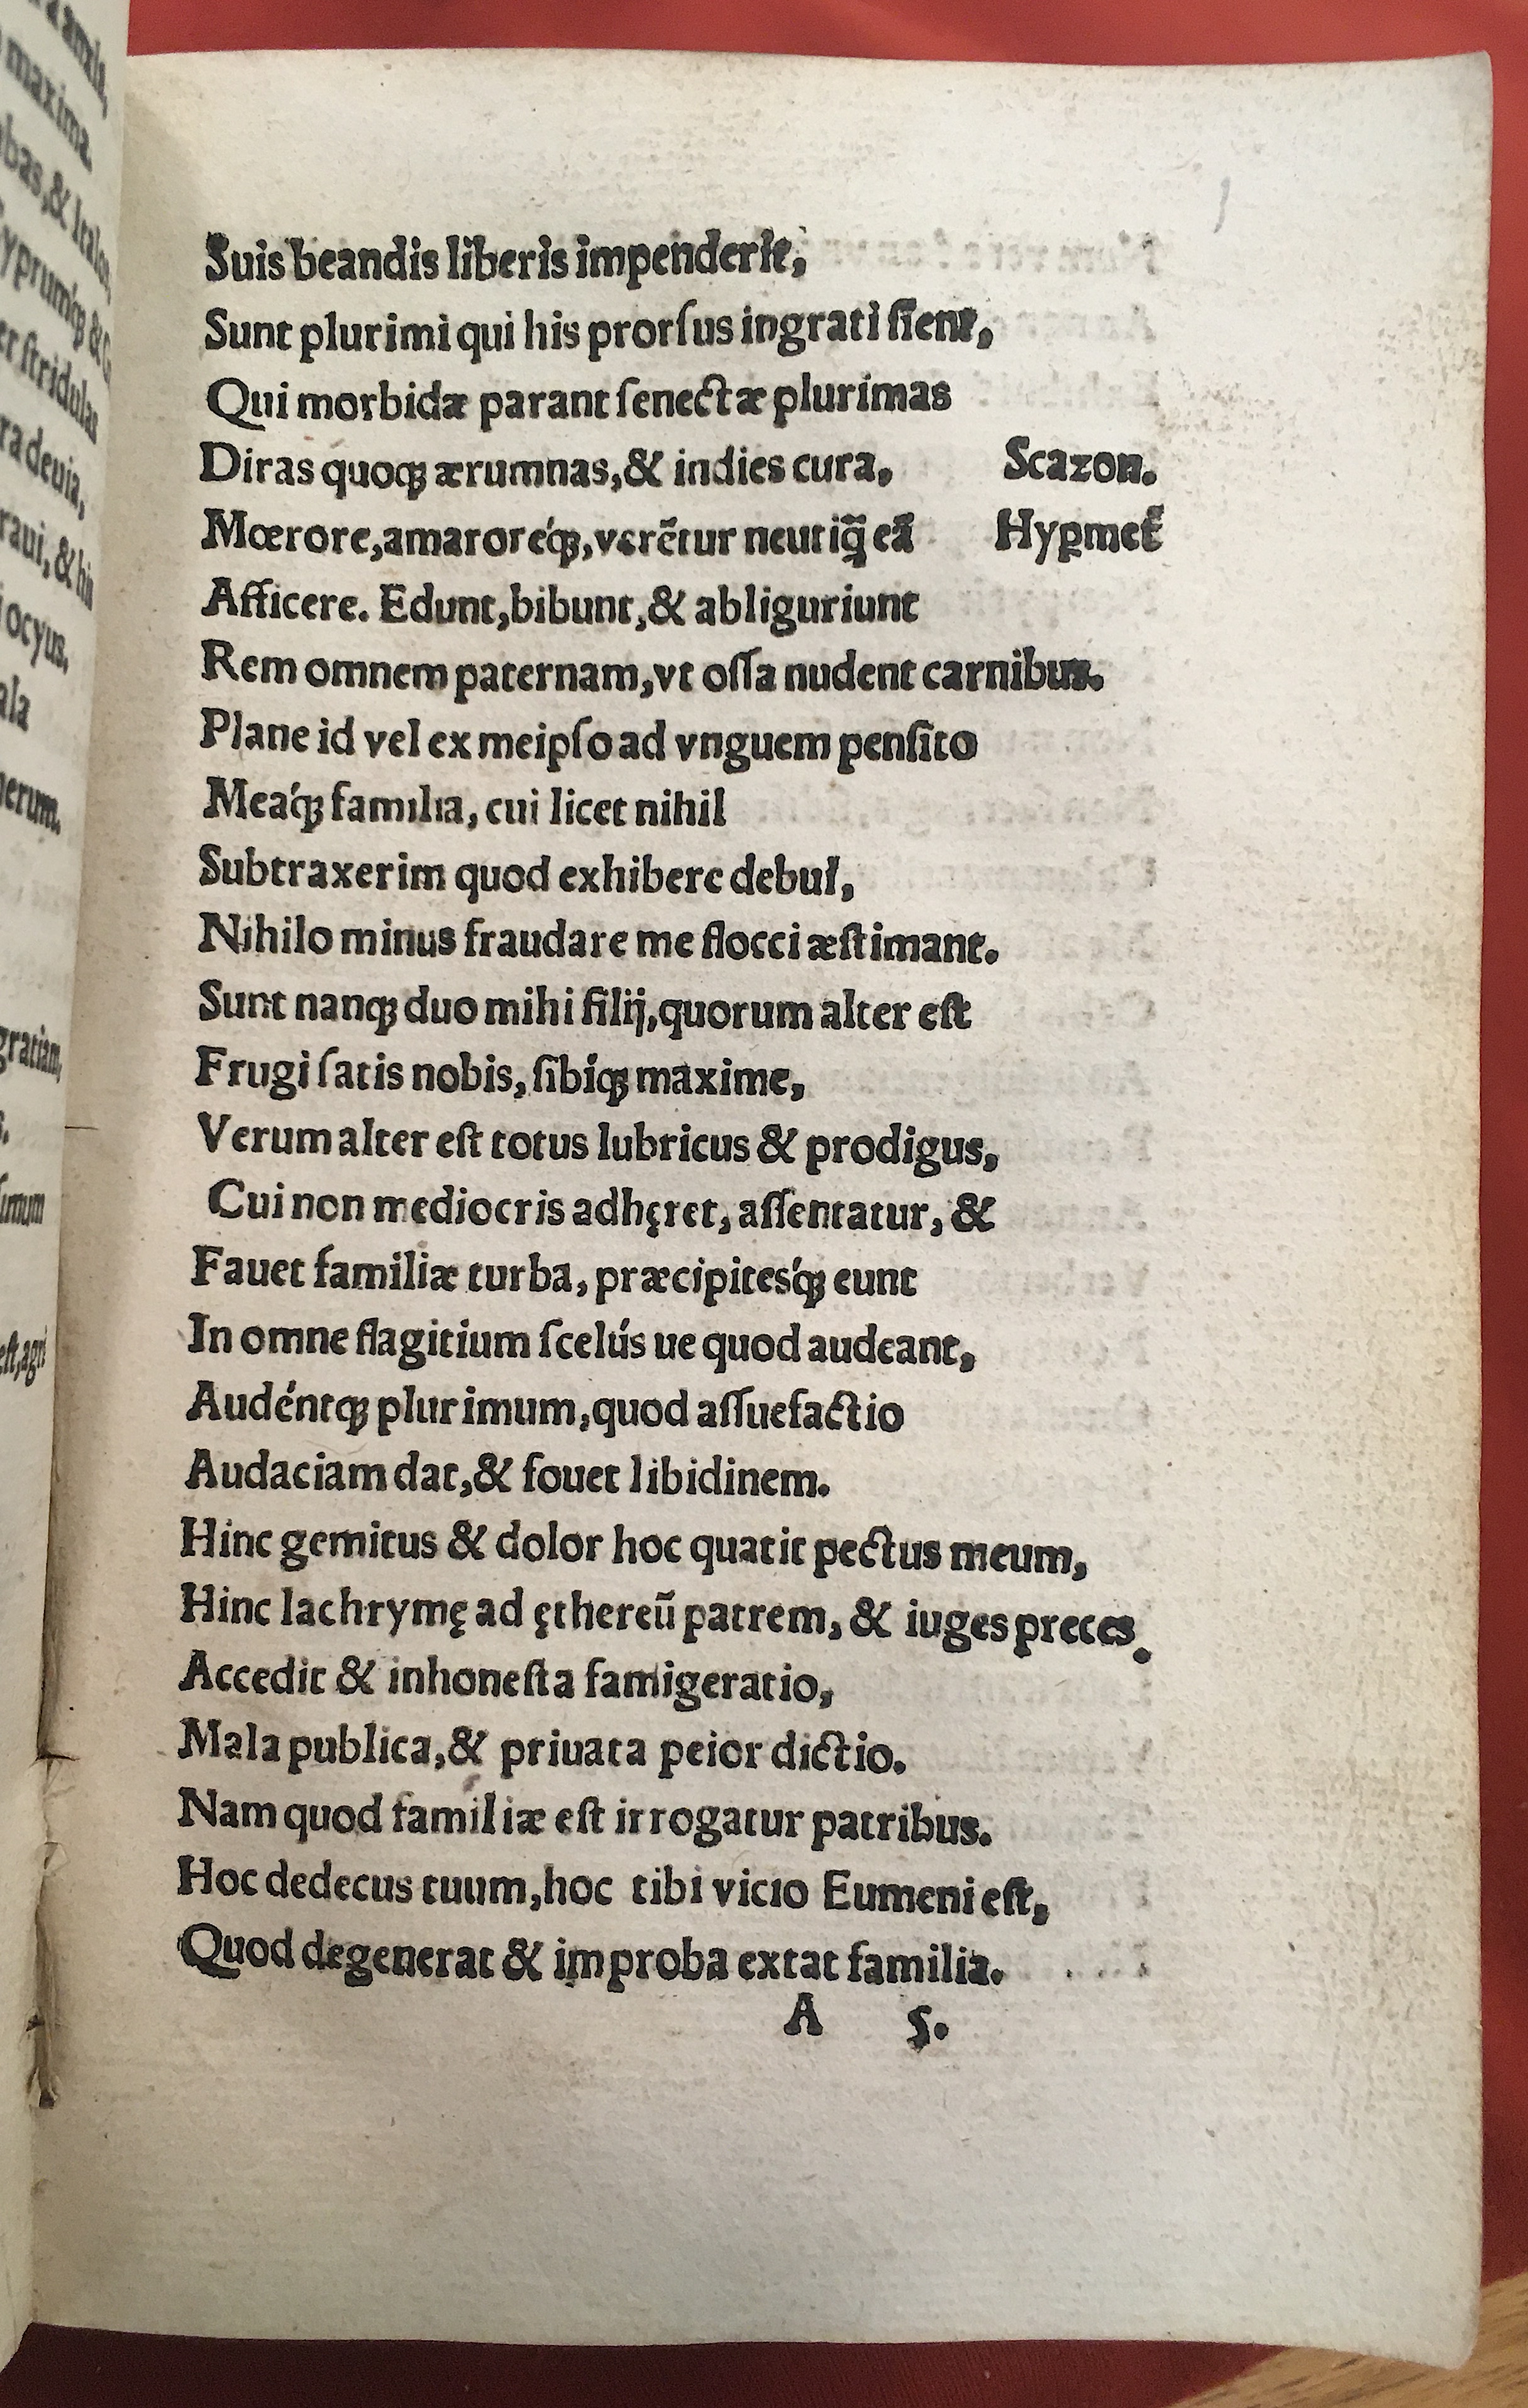 Suis beandis liberis impenderit,
Sunt plurimi qui his prorſus ingrati ſient,
Qui morbidæ parant ſenectæ plurimas
Diras quoqꝫ ærumnas,& indies cura, Scazon.
Mœrore,amaroreq́ꝫ,verẽtur neutiq̃ eã Hyꝑmet̃
Afficere. Edunt,bibunt,& abliguriunt
Rem omnem paternam,vt oſſa nudent carnibus.
Plane id vel ex meipſo ad vnguem penſito
Meaq́ꝫ familia, cui licet nihil
Subtraxerim quod exhibere debui,
Nihilo minus fraudare me flocci æſtimant.
Sunt nanqꝫ duo mihi filij,quorum alter eſt
Frugi ſatis nobis, ſibíqꝫ maxime,
Verum alter eſt totus lubricus & prodigus,
Cui non mediocris adhęret, aſſentatur, &
Fauet familiæ turba, præcipitesq́ꝫ eunt
In omne flagitium ſcelús ue quod audeant,
Audéntqꝫ plurimum,quod aſſuefactio
Audaciam dat,& fouet libidinem.
Hinc gemitus & dolor hoc quatit pectus meum,
Hinc lachrymę ad ęthereũ patrem, & iuges preces.
Accedit & inhoneſta famigeratio,
Mala publica,& priuata peior dictio.
Nam quod familiæ eſt irrogatur patribus.
Hoc dedecus tuum,hoc tibi vicio Eumeni eſt,
Quod degenerat & improba extat familia.
A 5.